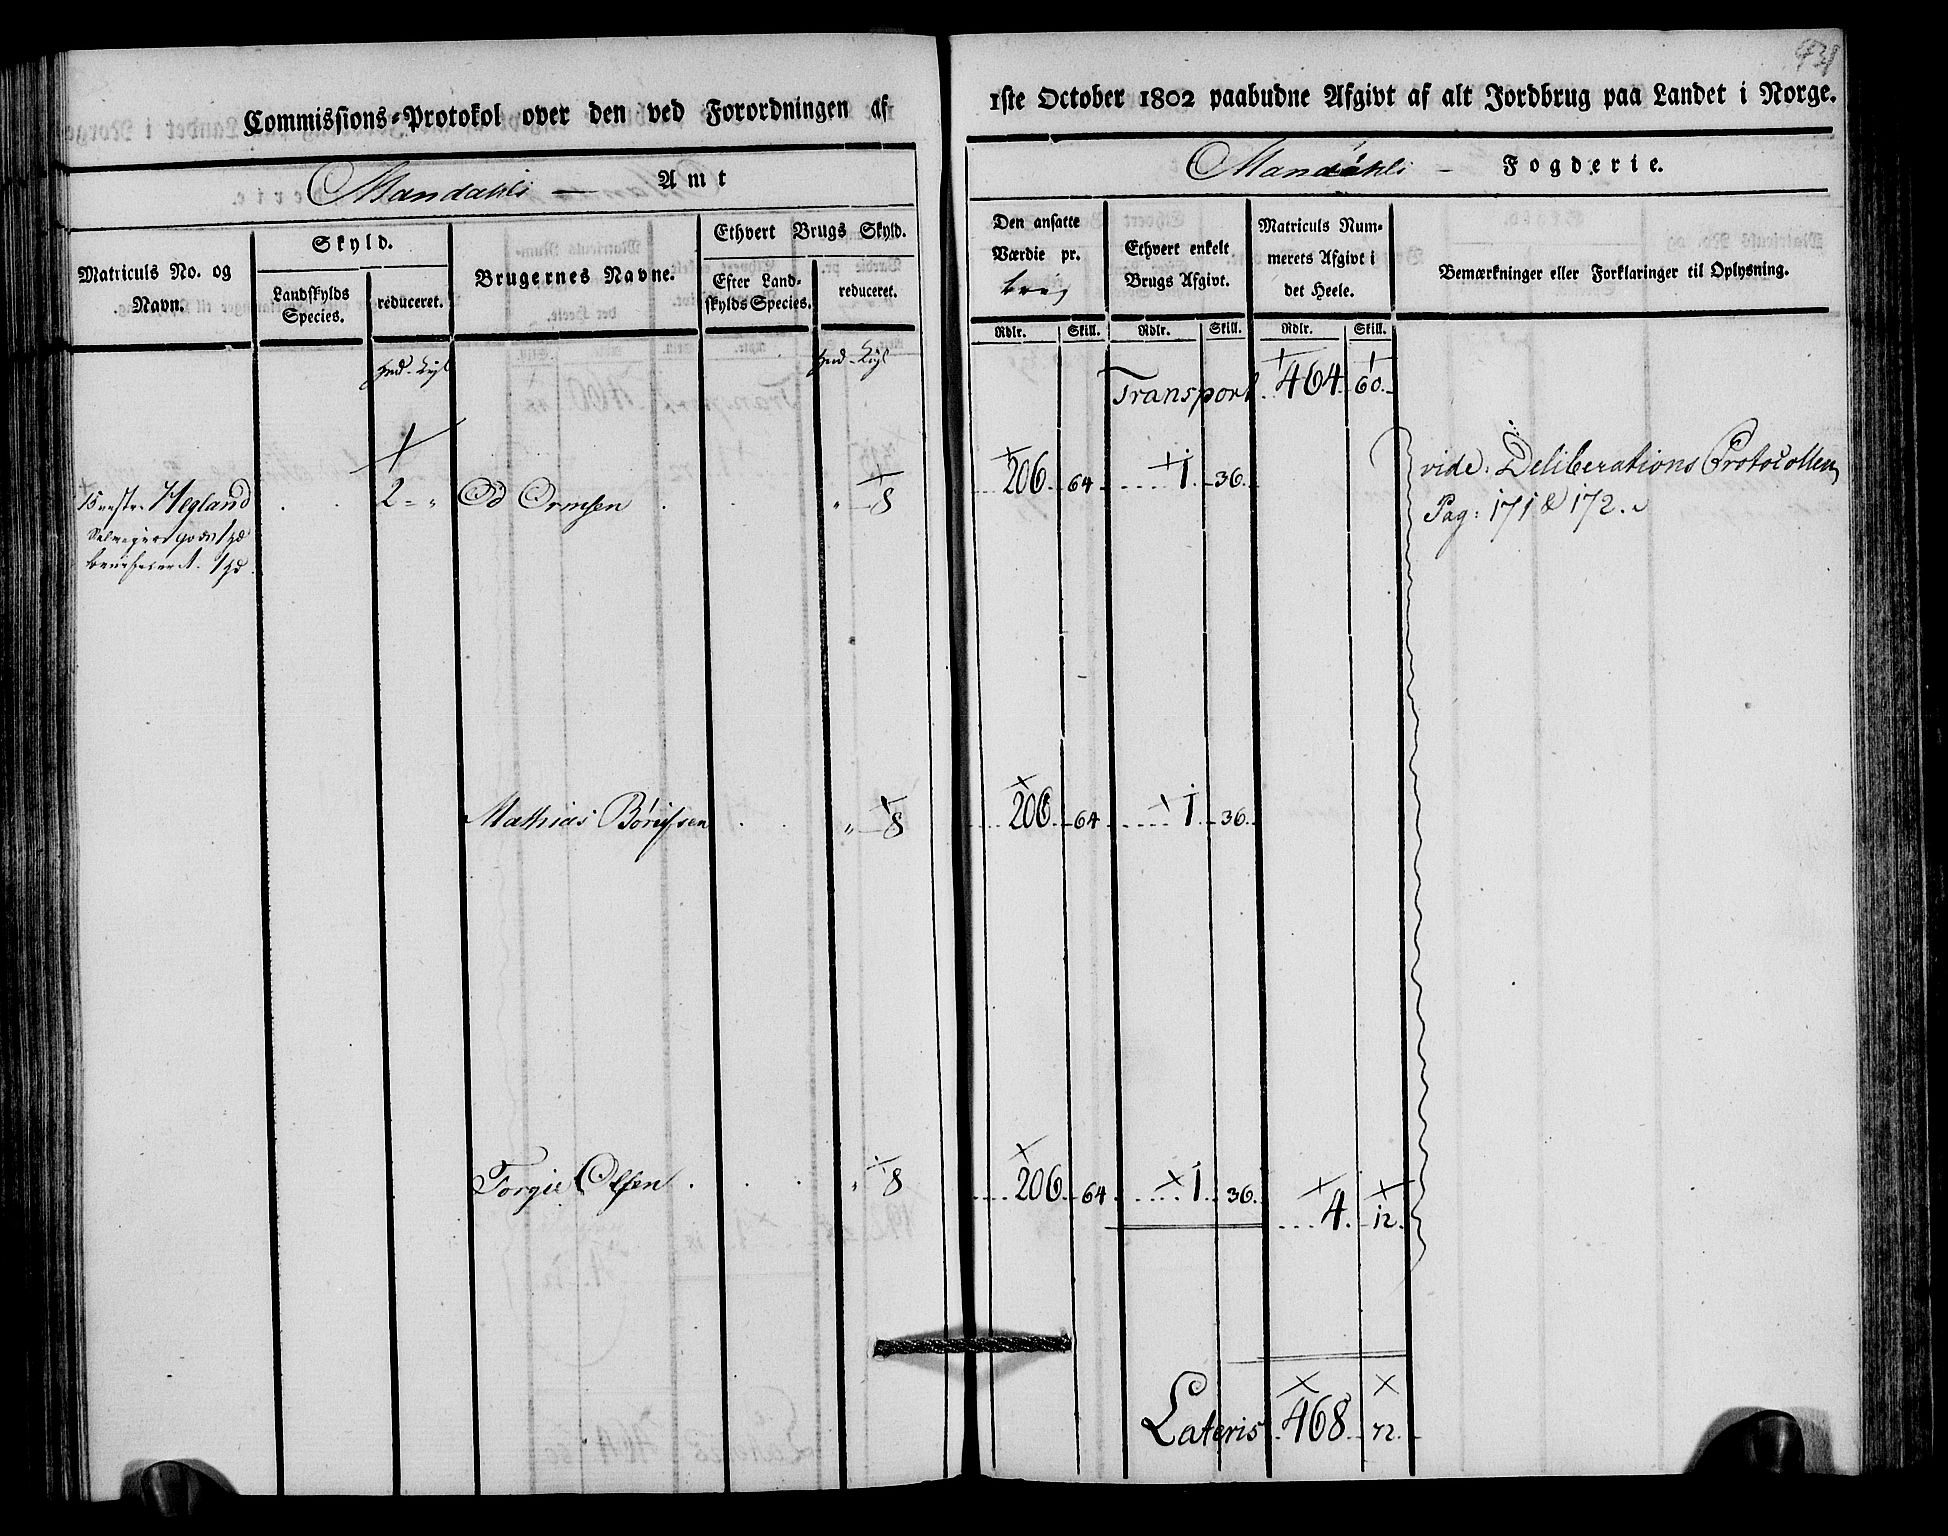 Commissions-Protokol over den ved Forordningen af
Mandahls Amt
Matriculs No. og Navn.
Skyld.
Landskylds Species.
reduceret.
Brugernes Navne.
Ethvert Brugs Skyld.
Efter Landskylds Species.
reduceret.
Hegland
2 - "
Od Ormsen
" 8
Mathias
" 8
Torgie Olsen
" 8
1ste October 1802 paabudne Afgivt af alt Jordbrug paa Landet i Norge.
Mandahls - Fogderie.
Den ansatte Værdie pr.
Ethvert enkelt Brugs Afgivt.
Matriculs Nummerets Afgivt i det Heele.
Bemærkninger eller Forklaringer til Oplysning.
Rdlr. Skill. Rdlr. Skill. Rdlr. Skill.
Transport 464 60
206 64 1 36 vide: Deliberations Protocollen
Pag: 171 & 172.
206 64 1 36
206 64 1 36 4 12
Lateris 468 72